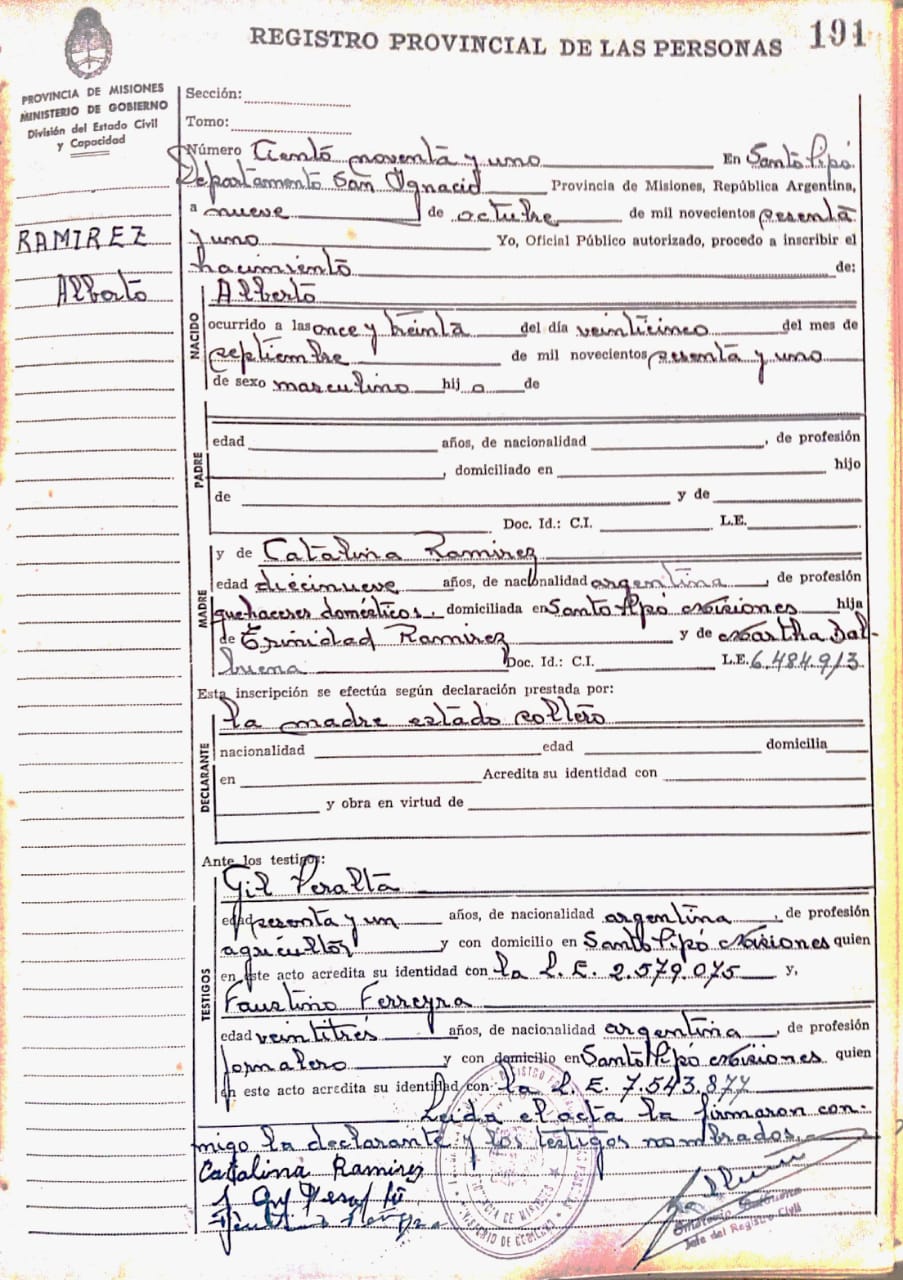 REGISTRO PROVINCIAL DE LAS PERSONAS 191
PROVINCIA DE MISIONES
MINISTERIO DE GOBIERNO
División del Estado Civil
y Capacidad
RAMIREZ
Alberto
Sección:
Tomo:
Número Ciento noventa y uno En Santo Pipó
Departamento San Ignacio Provincia de Misiones, República Argentina,
a nueve de octubre de mil novecientos sesenta
y uno Yo, Oficial Público autorizado, procedo a inscribir el
nacimiento de:
NACIDO
Alberto
ocurrido a las once y treinta del día veinticinco del mes de
septiembre de mil novecientos sesenta y uno
de sexo masculino hijo de
PADRE
edad años, de nacionalidad , de profesión
, domiciliado en hijo
de y de
Doc. Id.: C.I. L.E.
MADRE
y de Catalina Ramirez
edad diecinueve años, de nacionalidad argentina, de profesión
quehaceres domésticos, domiciliada en Santo Pipó Misiones hija
de Trinidad Ramirez y de Martha Bal-
buena Doc. Id.: C.I. L.E. 6.484.913
Esta inscripción se efectúa según declaración prestada por:
DECLARANTE
la madre estado soltero
nacionalidad edad domicilia
en Acredita su identidad con
y obra en virtud de
Ante los testigos:
TESTIGOS
Gil Peralta
edad sesenta y un años, de nacionalidad argentina, de profesión
agricultor y con domicilio en Santo Pipó Misiones quien
en este acto acredita su identidad con la L.E. 2.579.075 y,
Faustino Ferreyra
edad veintitrés años, de nacionalidad argentina, de profesión
jornalero y con domicilio en Santo Pipó Misiones quien
en este acto acredita su identidad con la L.E. 7.543.877
Leida el acta la firmaron con-
migo la declarante y los testigos nombrados.
Catalina Ramirez
Jefe del Registro Civil